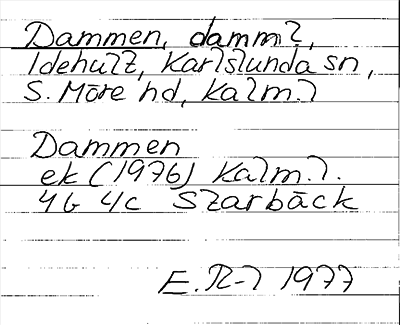 Dammen, damml,
Idehult, Karlslunda sn,
S. Möre hd, Kalm. l
Dammen
ek (1976) Kalm. l.
4G 4c Starbäck
E. R-l 1977